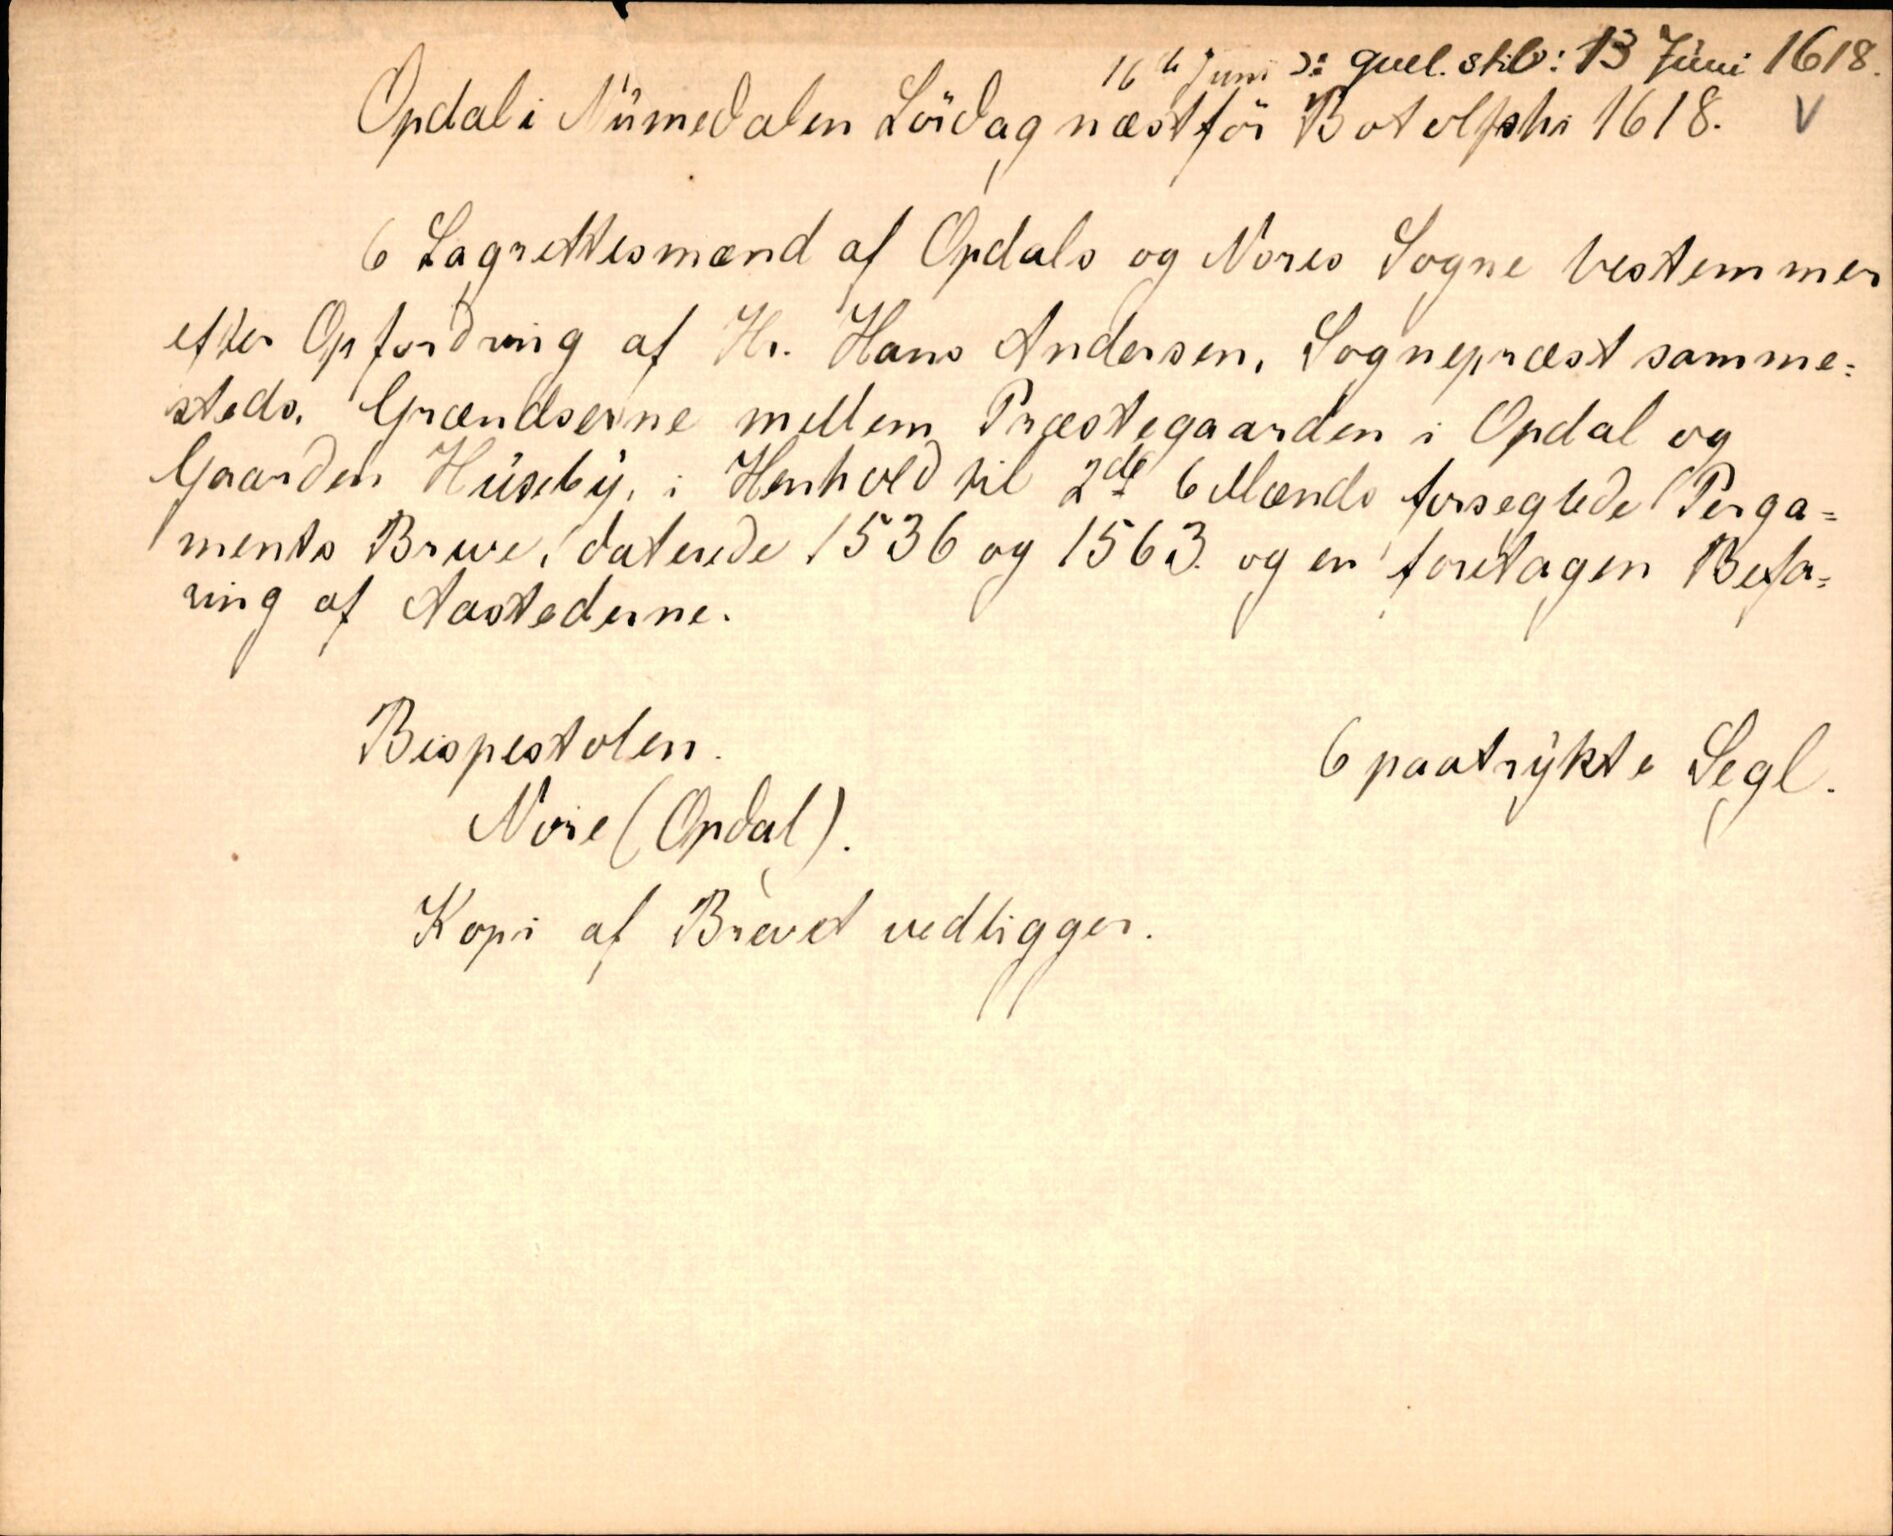 16de Juni ɔ: guel. stilo: 13 Juni 1618.
Opdal i Numedalen Lördag næst för Botolphi 1618. V
6 Lagrettesmænd af Opdals og Nores Sogne bestemmer
efter Opfordring af Hr. Hans Andersen, Sognepræst samme=
steds, Grændserne mellem Præstegaarden i Opdal og
Gaarden Huseby, i Henhold til 2de 6 Mænds forseglede Perga=
ments Breve, daterede 1536 og 1563. og en foretagen Befa=
ring af Aastederne.
Bispestolen.
6 paatrykte Segl.
Nore (Opdal).
Kopi af Brevet vedligger.